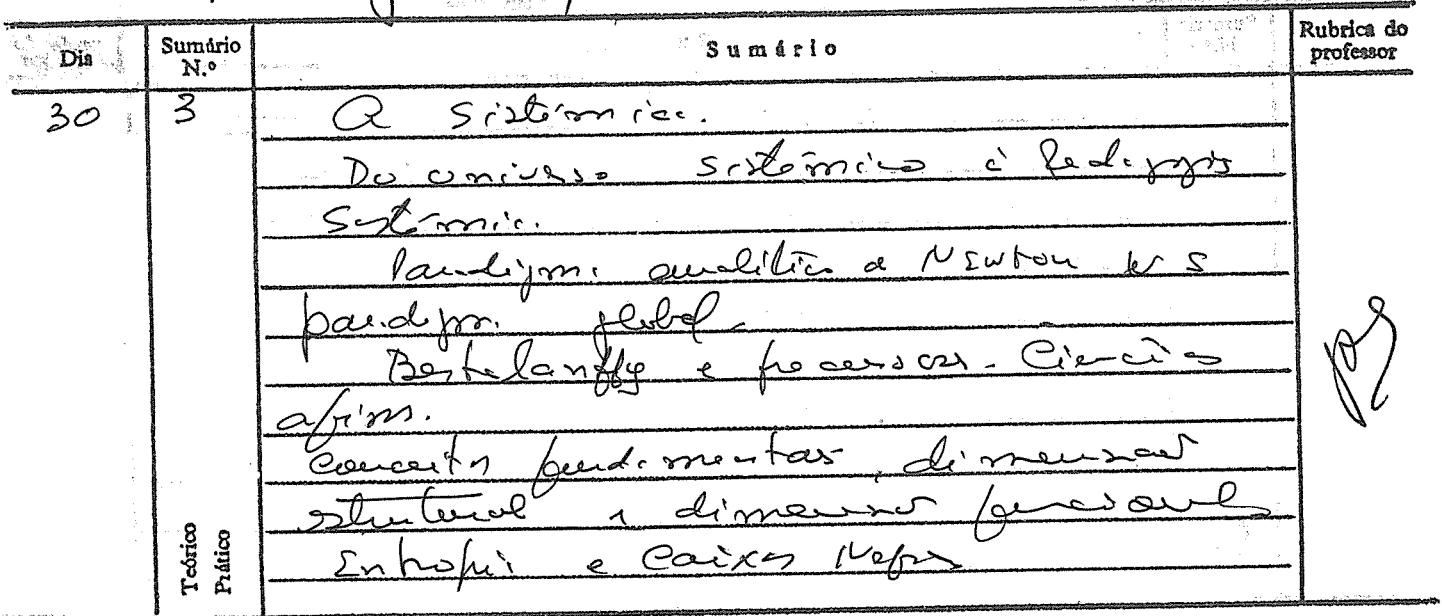 Dia Sumário N.º Sumário Rubrica do professor
30 3 A Sistémica.
Do universo sistémico à Pedagogia
Sistémica.
Paradigma analítico de Newton vs
paradigma global.
Bertalanffy e precursores. Ciências
afins.
Conceitos fundamentais, dimensão
estrutural e dimensão funcional
Entropia e Caixa Negra
Teórico
Prático